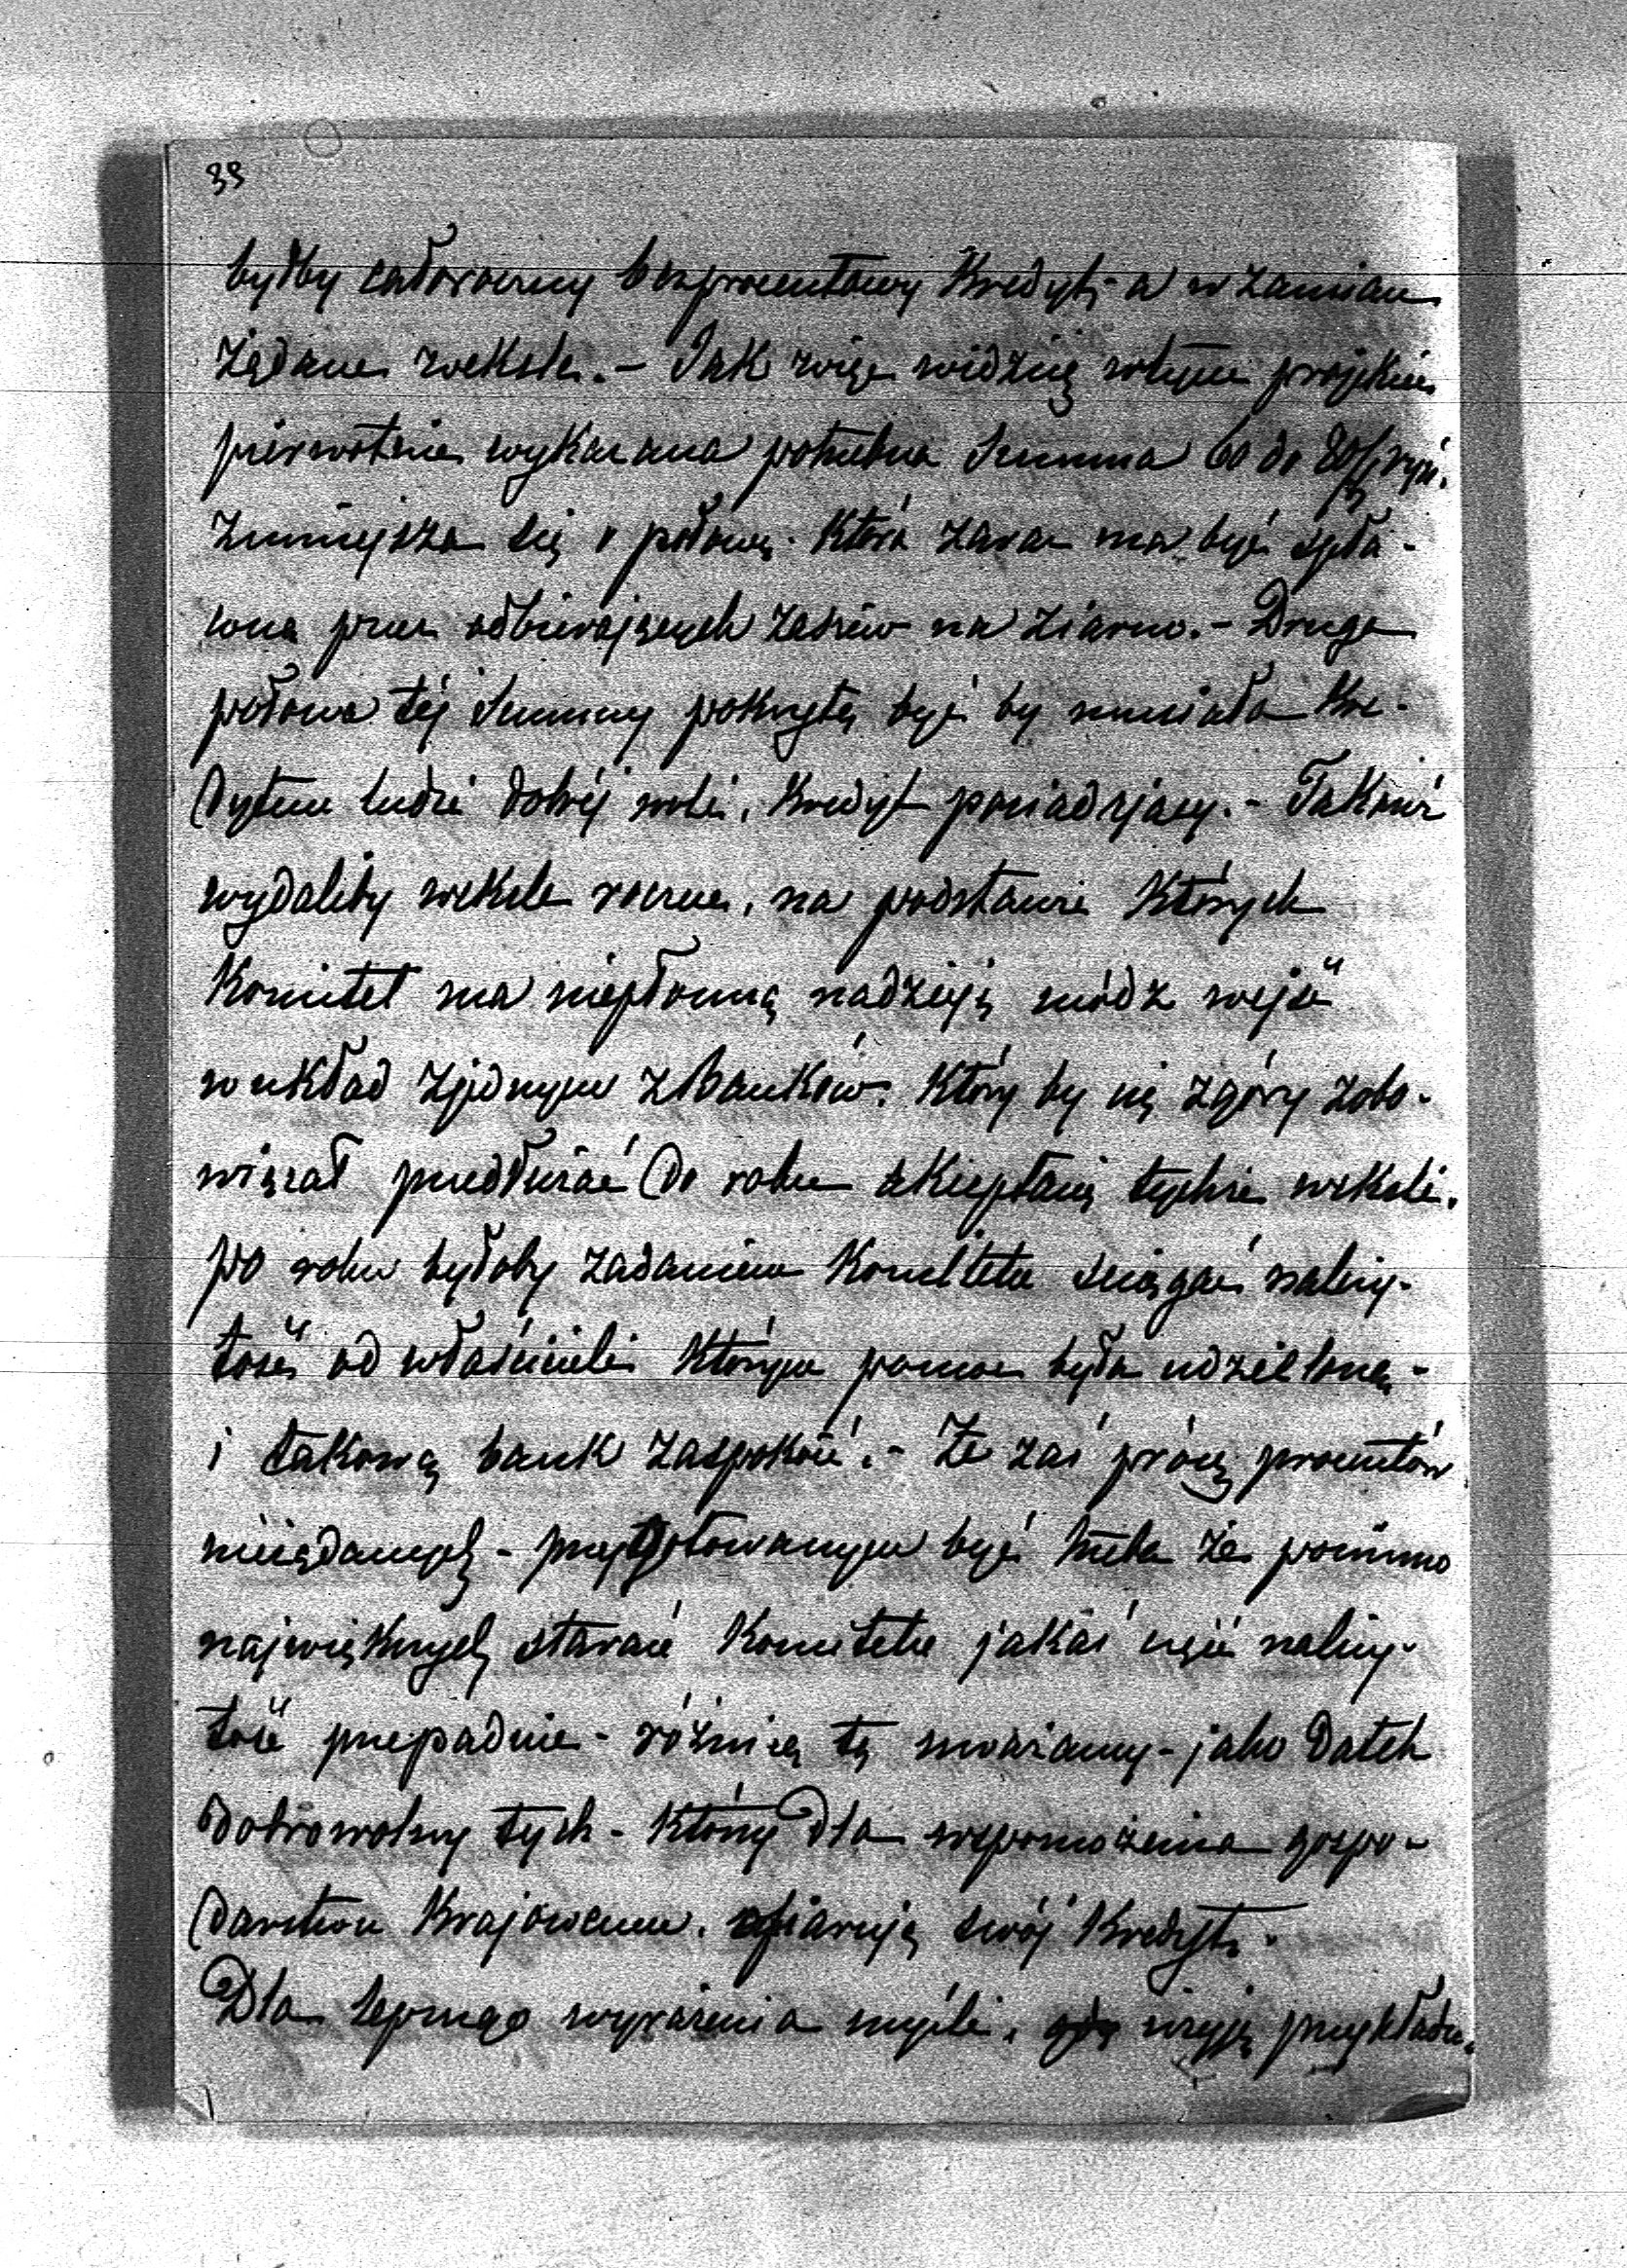 33
byłby całoroczny bezprocentowy Kredyt, a w zamian
żądane weksle. - Jak więc widzieją w tym projekcie
pierwotnie wykazana potrzebna Summa 60 do 80/
zmniejsza się o połowę. Która zaraz ma być spła-
coną przez odbierających zasiew na ziarno. - Druga
połowa tej Summy pokrytą być by musiała Kre-
dytem ludzi dobrej woli, Kredyt posiadający. - Takowi
wydaliby weksle roczne, na podstawie Których
Komitet ma niepłonną nadzieję módz wejść
w układ z jednym z Banków. Który by się z góry zobo-
wiązał przedłużać do roku akceptację tychże weksli.
po roku byłoby zadaniem Komitetu ściągać należy-
tość od właścicieli Którym pomoc była udzieloną -
i takową bank zaspokoić. - Że zaś prócz procentów
nieżądanych - przygotowanym być trzeba że pomimo
największych starań Komitetu jakaś część należy-
tość przepadnie - różnicę tę uważamy - jako Datek
Dobrowolny tych - Którzy Dla wspomożenia gospo-
darstwu Krajowemu, ofiarują swój Kredyt. -
Dla lepszego wyrażenia myśli, użyję przykładu.